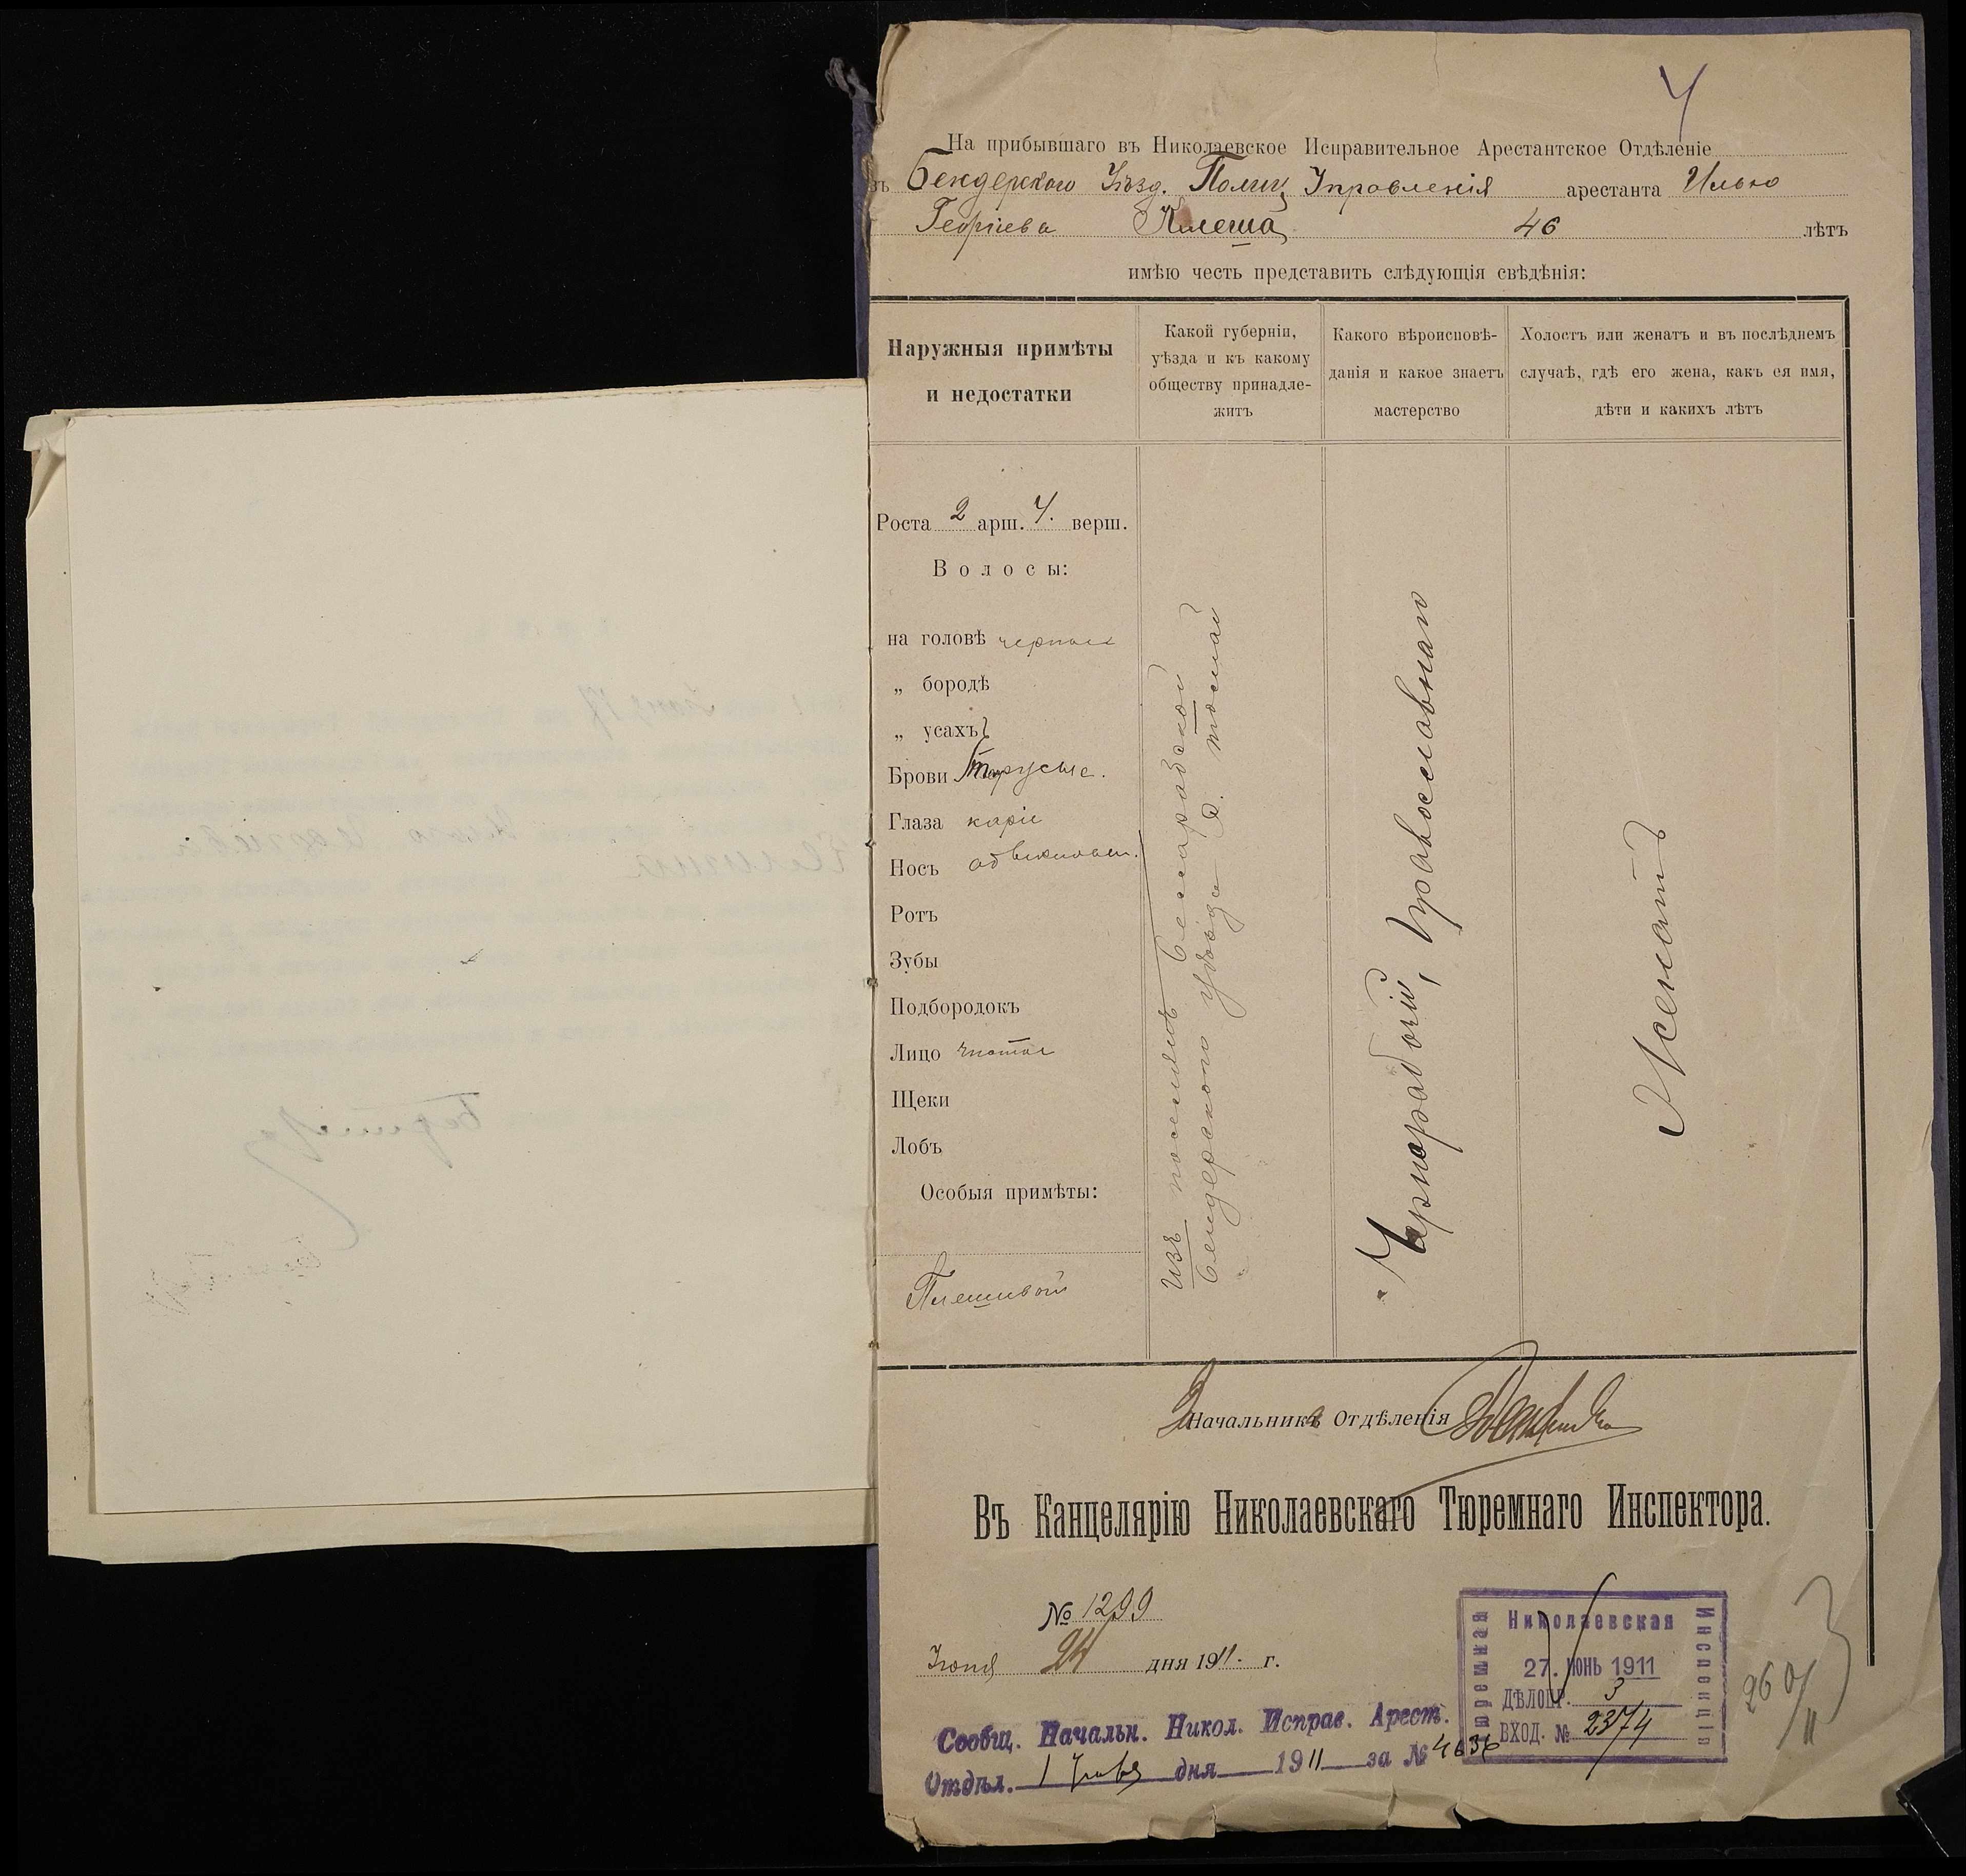 4
На прибывшаго въ Николаевское Исправительное Арестантское Отдѣленіе
въ Бендерского Уѣзд. Полиц Управленія арестанта Илью
Георгіева Клеша 46 лѣтъ
имѣю честь представить слѣдующія свѣдѣнія:
Наружныя примѣты
и недостатки
Какой губерніи,
уѣзда и къ какому
обществу принадле-
житъ
Какого вѣроисповѣ-
данія и какое знаетъ
мастерство
Холостъ или женатъ и въ послѣднемъ
случаѣ, гдѣ его жена, какъ ея имя,
дѣти и какихъ лѣтъ
Роста 2 арш. 4. верш.
Волосы:
на головѣ черные
„ бородѣ
„ усахъ
Брови
Глаза каріе
Носъ
Ротъ
Зубы
Подбородокъ
Лицо чистое
Щеки
Лобъ
Особыя примѣты:
Плешивой
Изъ поселянъ Бессарабской
Бендерского уѣзда
Чернорабочій, Православнаго
Женатъ
Начальника Отдѣленія
Въ Канцелярію Николаевскаго Тюремнаго Инспектора.
№ 1299
Іюня 24 дня 1911. г.
Николаевская
Тюремная
Инспекція
27. ІЮНЬ 1911
ДѢЛОПР. 3
ВХОД. № 2374
260/11
Сообщ. Начальн. Никол. Исправ. Арест.
Отдѣл. 1 дня 1911 за № 4636